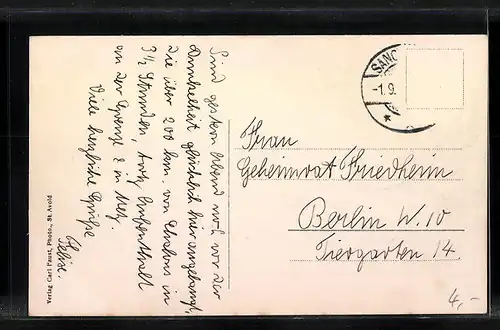 Sind gestern Abend noch vor der
Dunkelheit glücklich hier angelangt,
die über 200 km. von in
3½ Stunden, trotz Aufenthalt
an der Grenze & in Metz.
Viele herzliche Grüße
Felix.
Verlag Carl Faust, Photo., St. Avold
SANC
-1.9.
*
Frau
Geheimrat Friedheim
Berlin W. 10
Tiergarten 14.
4,-